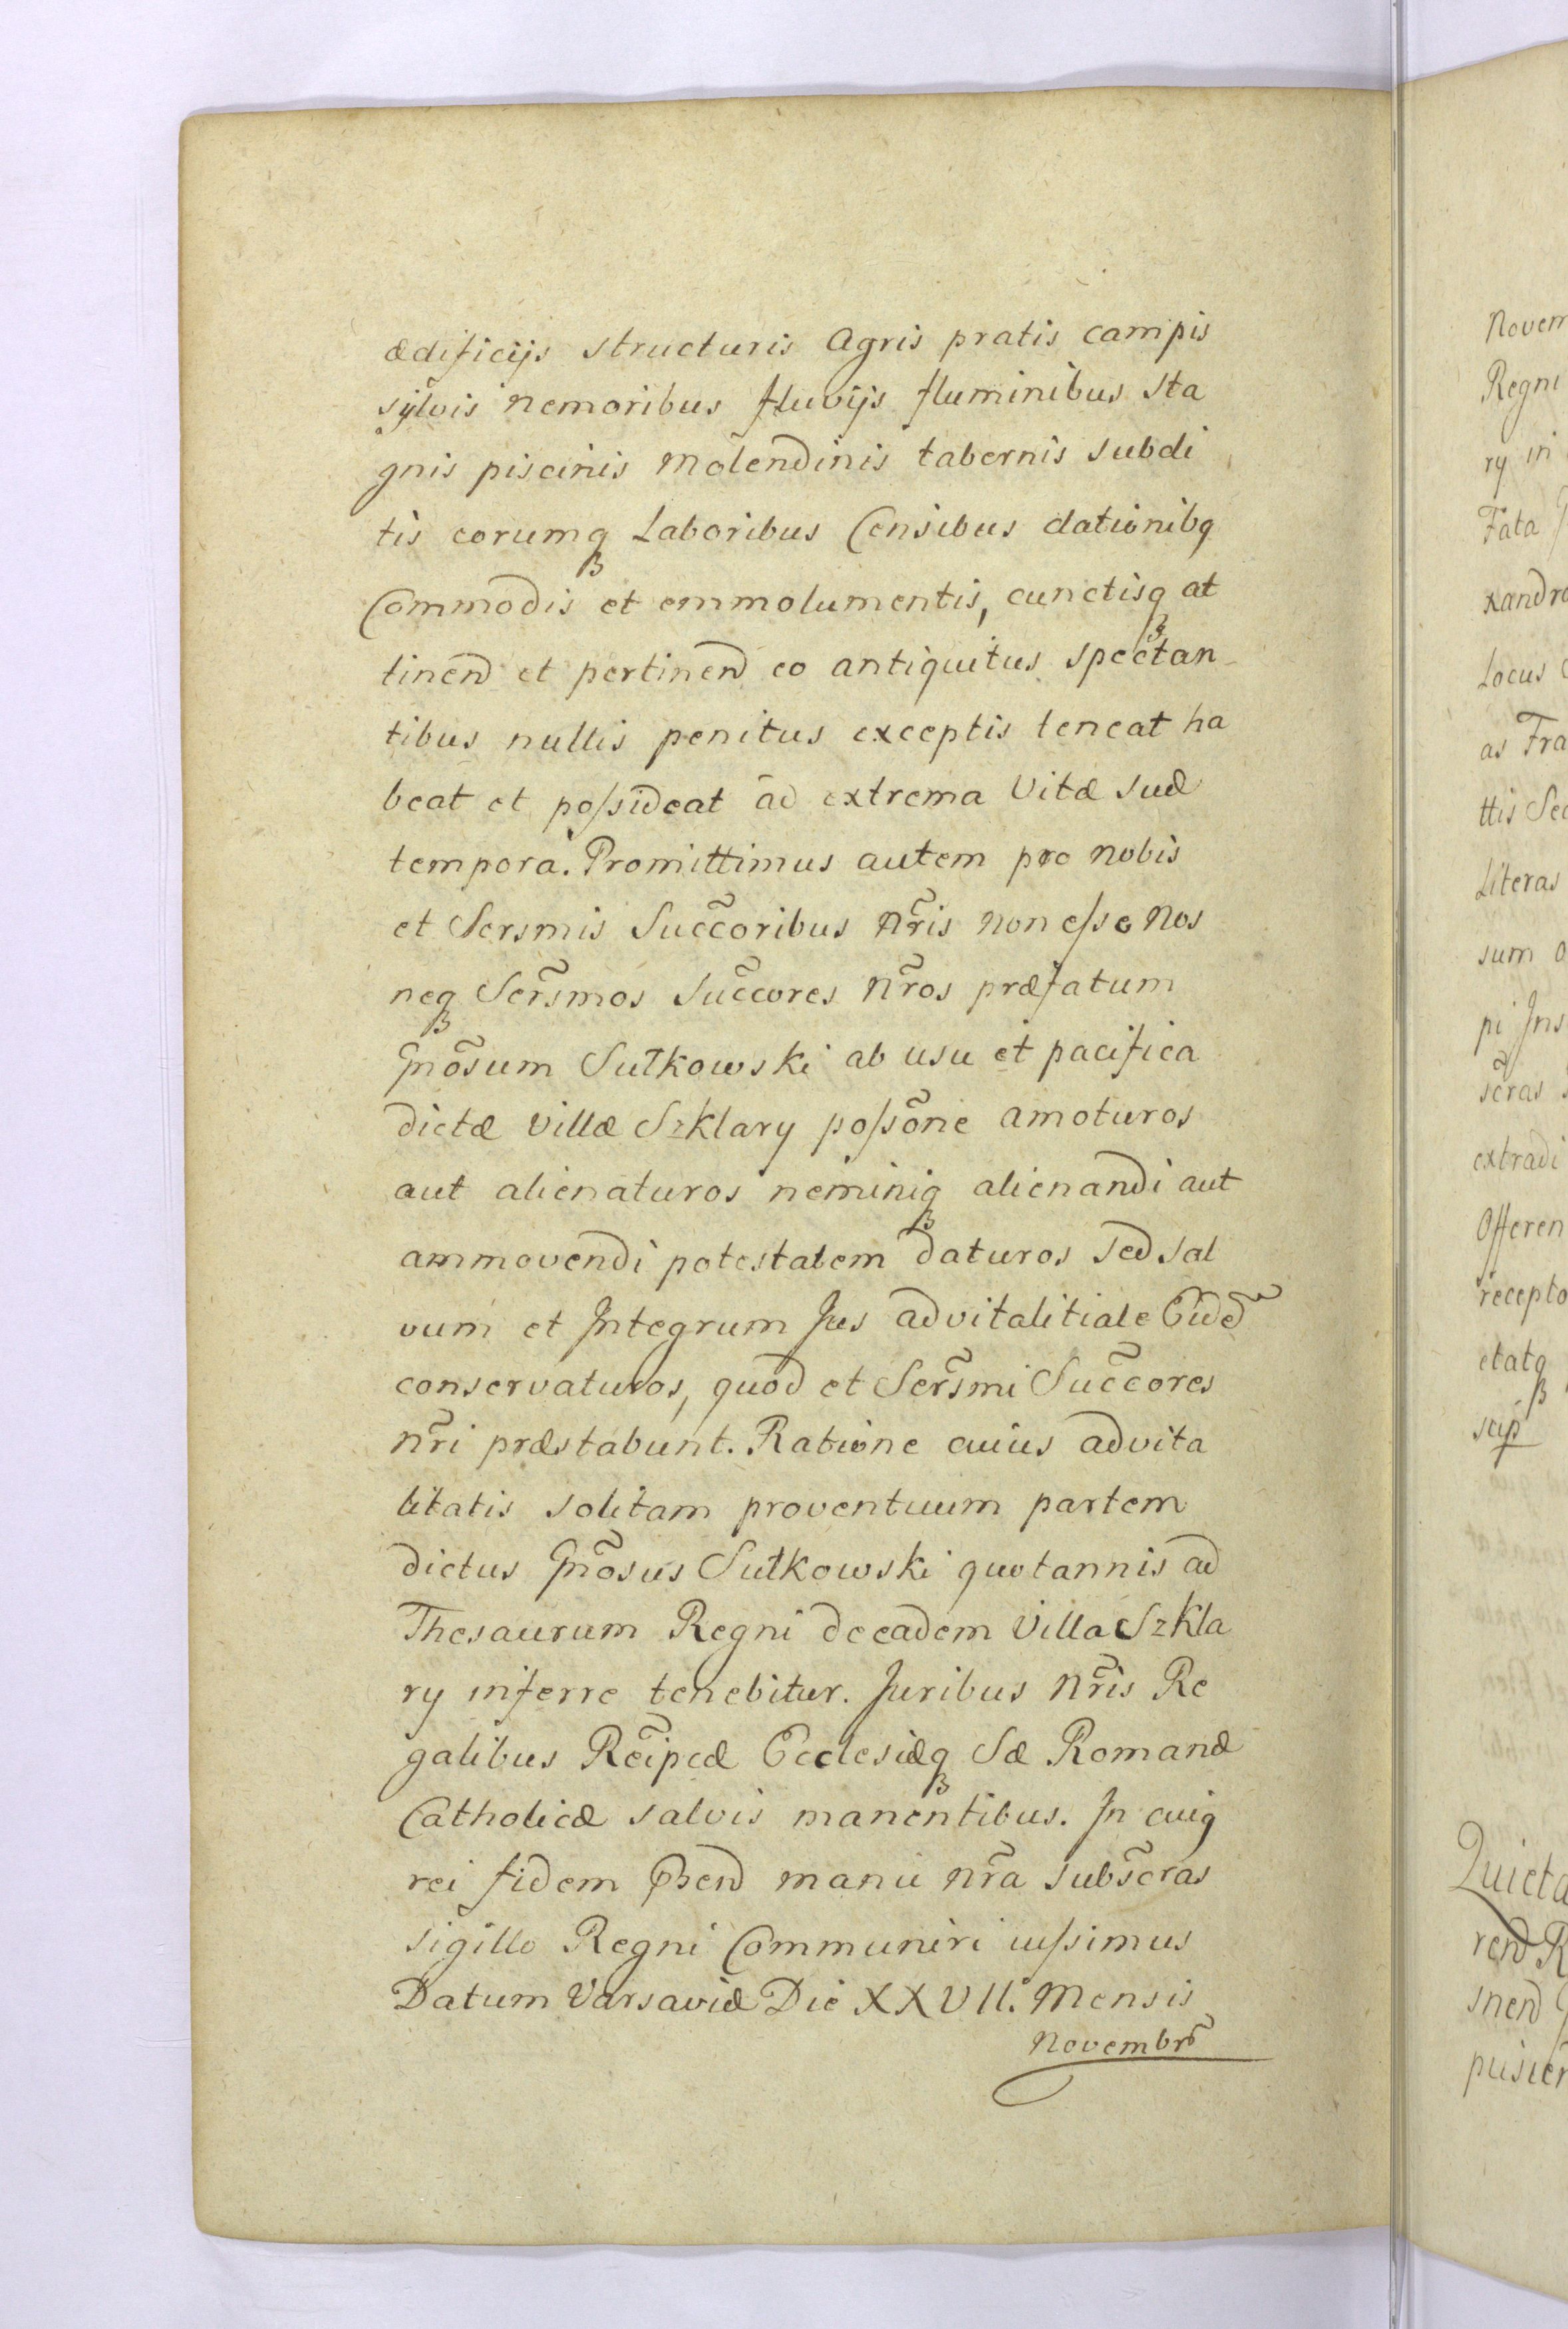 ædificijs structuris Agris pratis campis
sylvis nemoribus fluvijs fluminibus sta
gnis piscinis Molendinis tabernis subdi
tis eorumq Laboribus Censibus dationibq
Commodis et emmolumentis, cunctisq at
tinend et pertinend eo antiquitus spectan
tibus nullis penitus exceptis teneat ha
beat et poſsideat ad extrema Vitæ suæ
tempora. Promittimus autem pro nobis
et Sersmis Succ̃oribus nr̃is non eſse Nos
neq Ser̃smos Succ̃ores nr̃os præfatum
Gnõsum Sułkowski ab usu et pacifica
dictæ Villæ Szklary poſsõne amoturos
aut alienaturos neminiq alienandi aut
ammovendi potestatem daturos sed sal
vum et Integrum Jus advitalitiale Eid̃e
conservaturos, quod et Ser̃smi Succ̃ores
nr̃i præstabunt. Ratione cuius advita
litatis solitam proventuum partem
dictus Gnõsus Sułkowski quotannis ad
Thesaurum Regni de eadem Villa Szkla
ry inferre tenebitur. Juribus nr̃is Re
galibus Rẽipcæ Ecclesiæq Sæ Romanæ
Catholicæ salvis manentibus. In cuiq
rei fidem pñd manu nr̃a subscr̃as
sigillo Regni Communiri iuſsimus
Datum Varsaviæ Die XXVII. Mensis
Novembr̃
Novem
Regni
ry in
Fata
xandro
Locus
as Fra
ttis Sec
Literas
sum
pi Ins
scr̃as
extradi
Offeren
recepto
etatq
scip
Quieta
rend R
snend